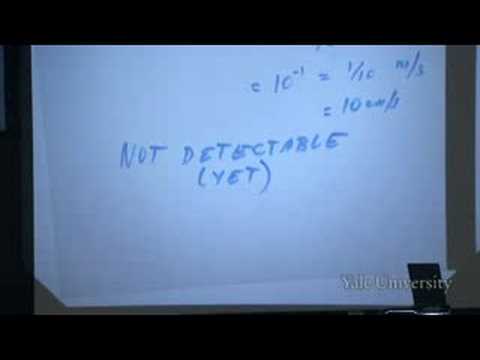 = 10⁻¹ = 1/10 m/s
= 10 cm/s
NOT DETECTABLE
(YET)
Yale University